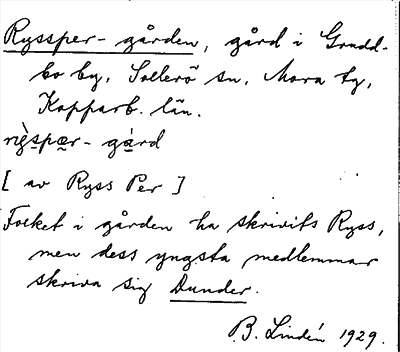 Ryssper-gården, gård i Grudd-
bo by, Sollerö sn, Mora tg,
Kopparb. län.
rỳspær-gård
[av Ryss Per]
Folket i gården ha skrivits Ryss,
men dess yngsta medlemmar
skriva sig Dunder.
B. Lindén 1929.